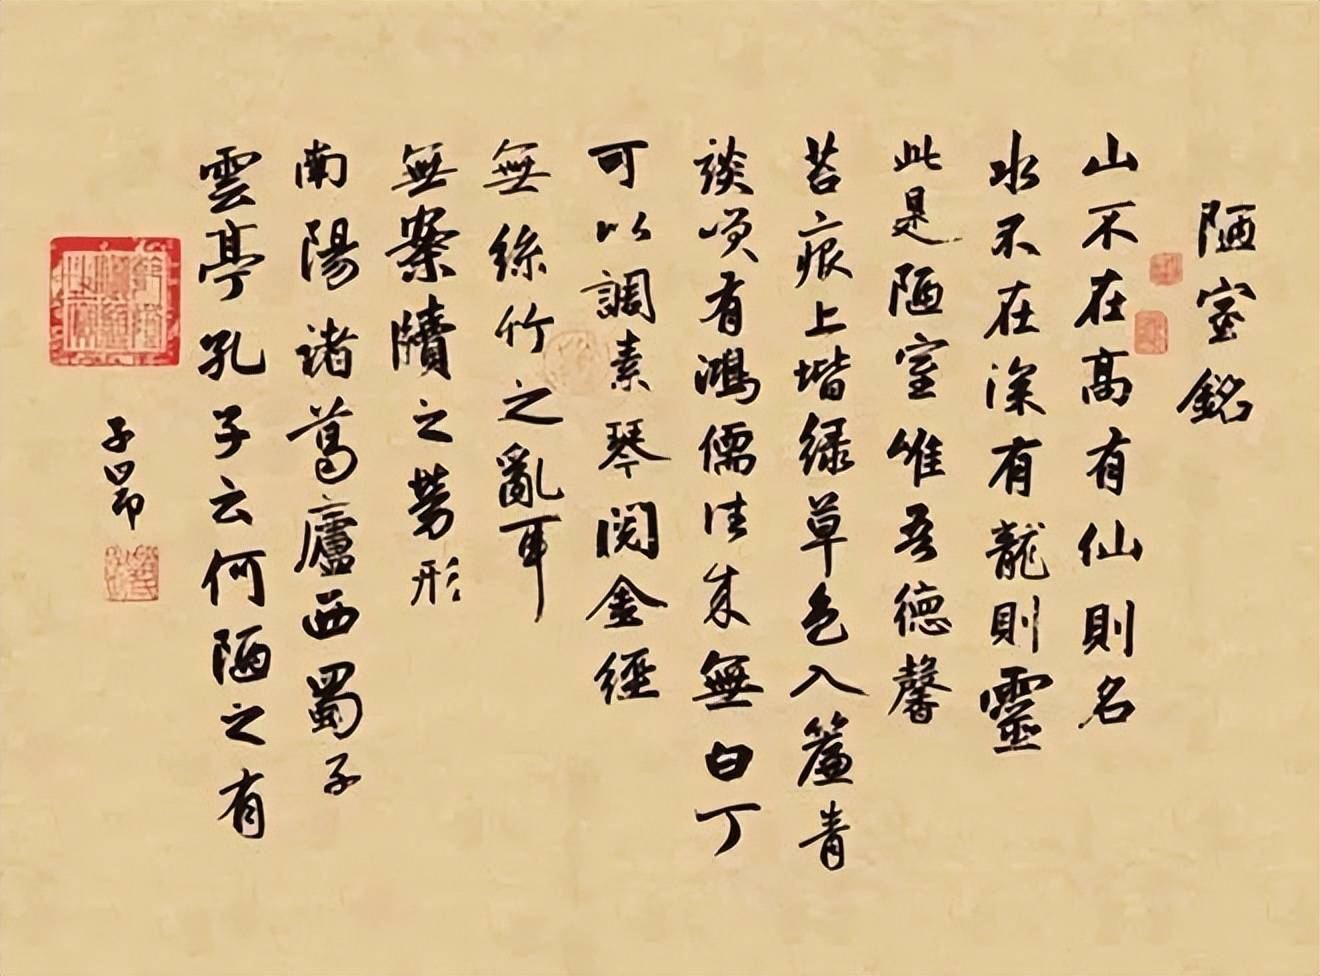 陋室銘
山不在高有仙則名
水不在深有龍則靈
此是陋室唯吾德馨
苔痕上堦緑草色入簾青
談笑有鴻儒往来無白丁
可以調素琴閲金經
無絲竹之亂耳
無案牘之勞形
南陽諸葛廬西蜀子
雲亭孔子云何陋之有
子昂